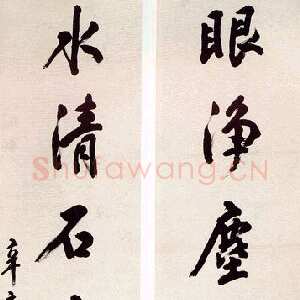 眼净塵
水清石
辛
Shufawang.CN